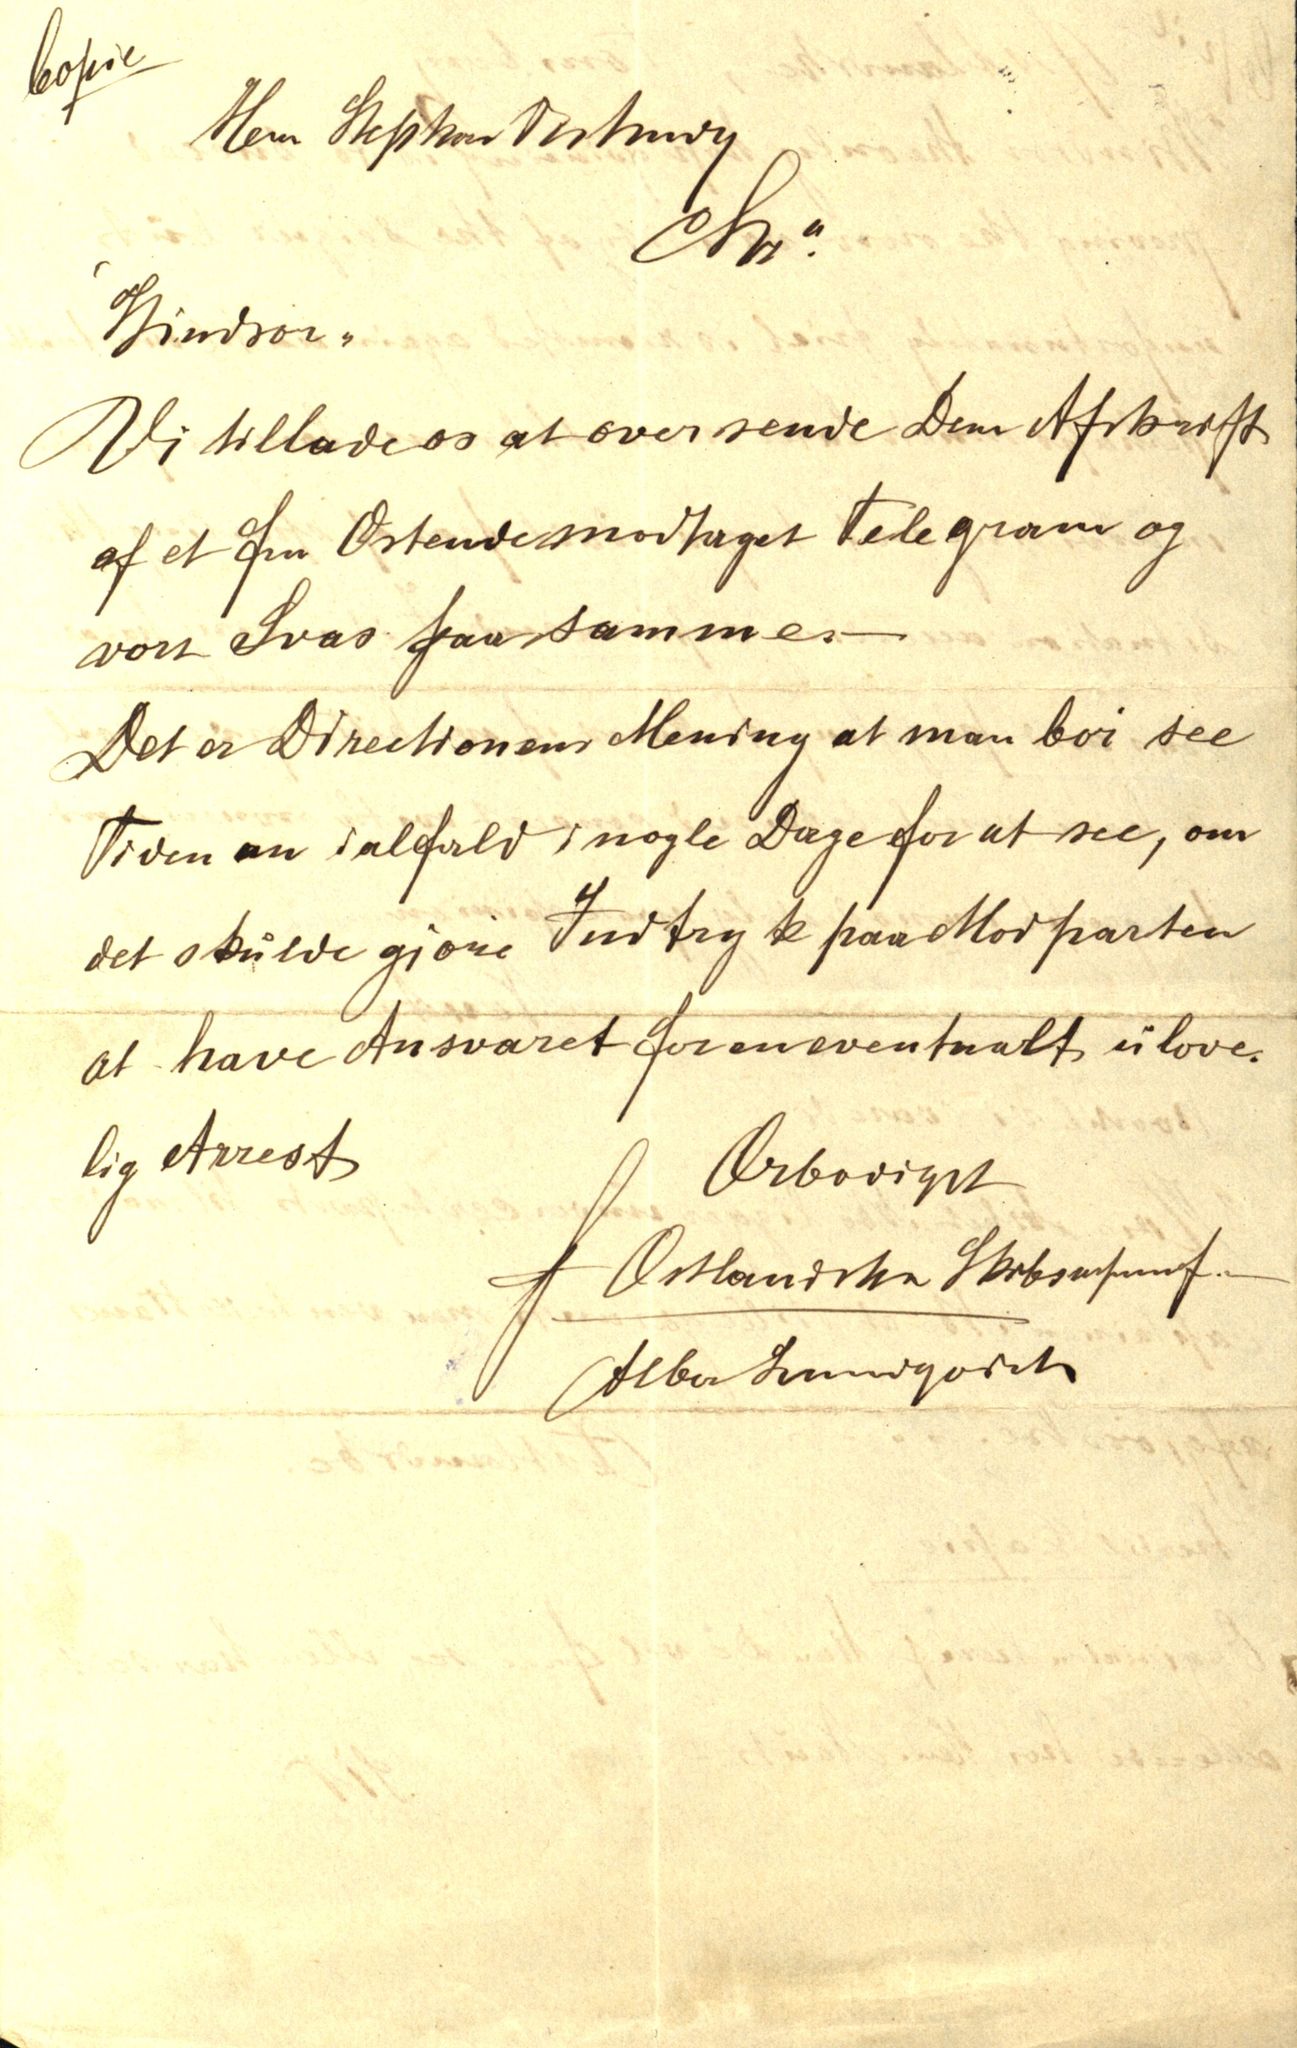 Copie
Herr Stephan
Chra.
"Windsor"
Vi tillade os at oversende Dem Afskrift
af et fra Ostende modtaget Telegram og
vort Svar paa samme. —
Det er Directionens Mening at man bør see
Tiden an ialfald i nogle Dage for at see, om
det skulde gjøre Indtryk paa Modparten
at have Ansvaret for en eventualt ulove-
lig Arrest
Ærbødigst
f Østlandske